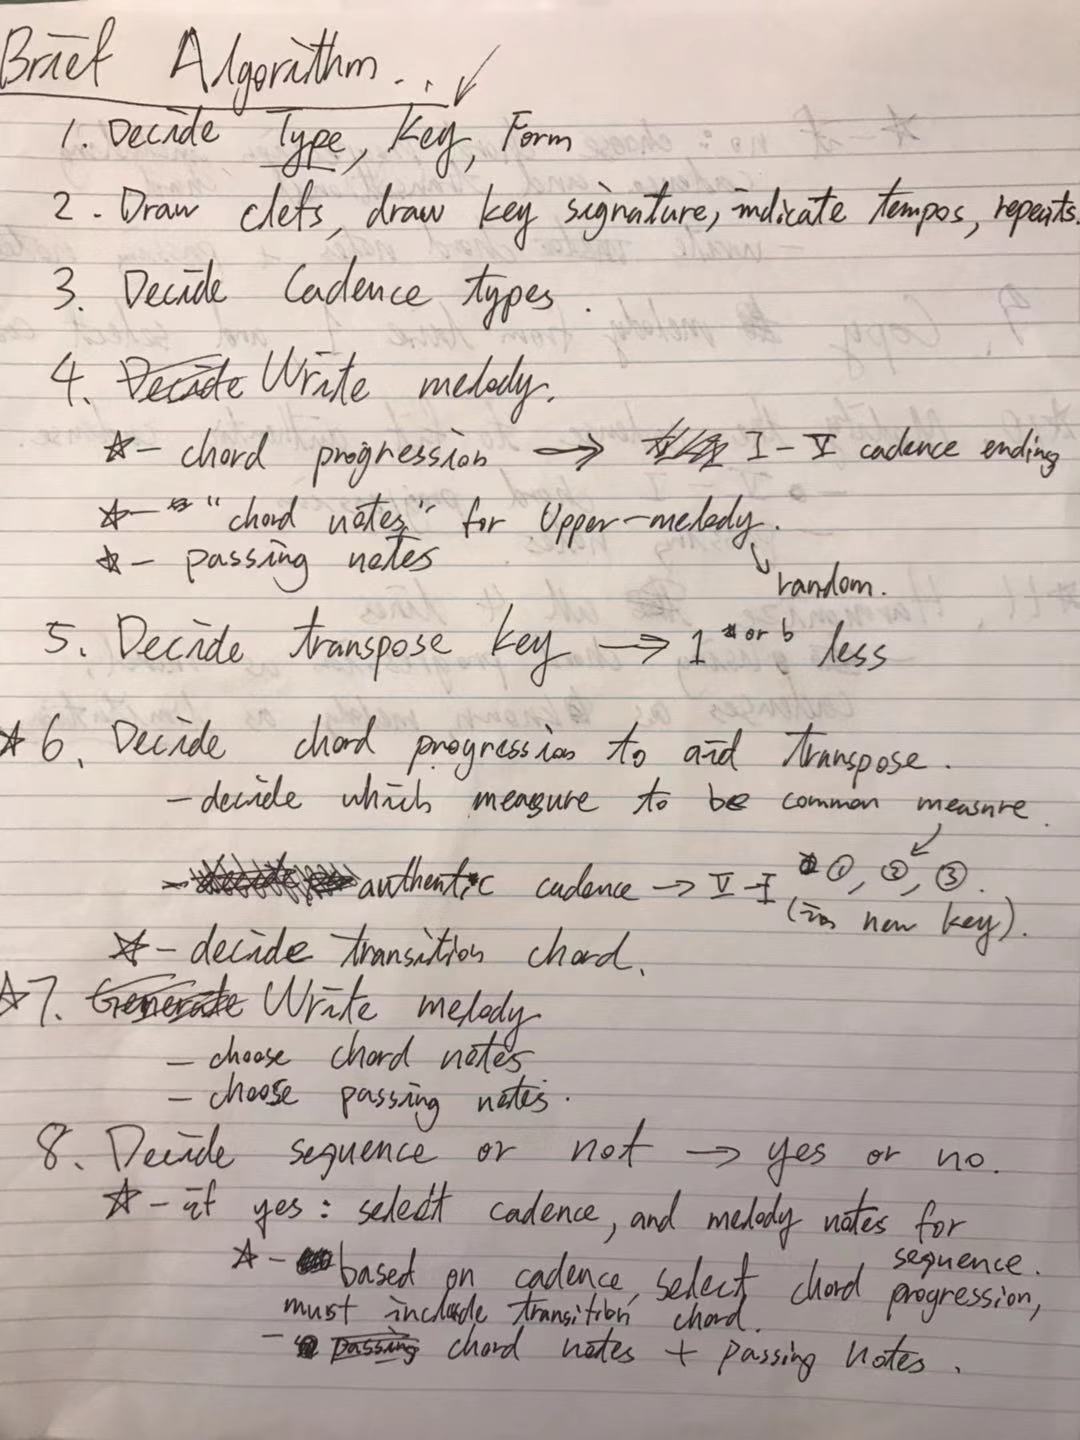 Brief Algorithm...
1. Decide Type, Key, Form
2. Draw clefs, draw key signature, indicate tempos, repeats.
3. Decide Cadence types.
4. Decide Write melody.
☆- chord progression → I - V cadence ending
☆- "chord notes" for Upper-melody.
☆- passing notes
random.
5. Decide transpose key → 1 # or b less
☆ 6. Decide chord progression to aid transpose.
- decide which measure to be common measure.
- authentic cadence → V - I ①, ②, ③.
(in new key).
☆- decide transition chord.
☆ 7. Generate Write melody
- choose chord notes
- choose passing notes.
8. Decide sequence or not → yes or no.
☆- if yes: select cadence, and melody notes for
sequence.
☆- based on cadence, select chord progression,
must include transition chord.
- passing chord notes + passing notes.